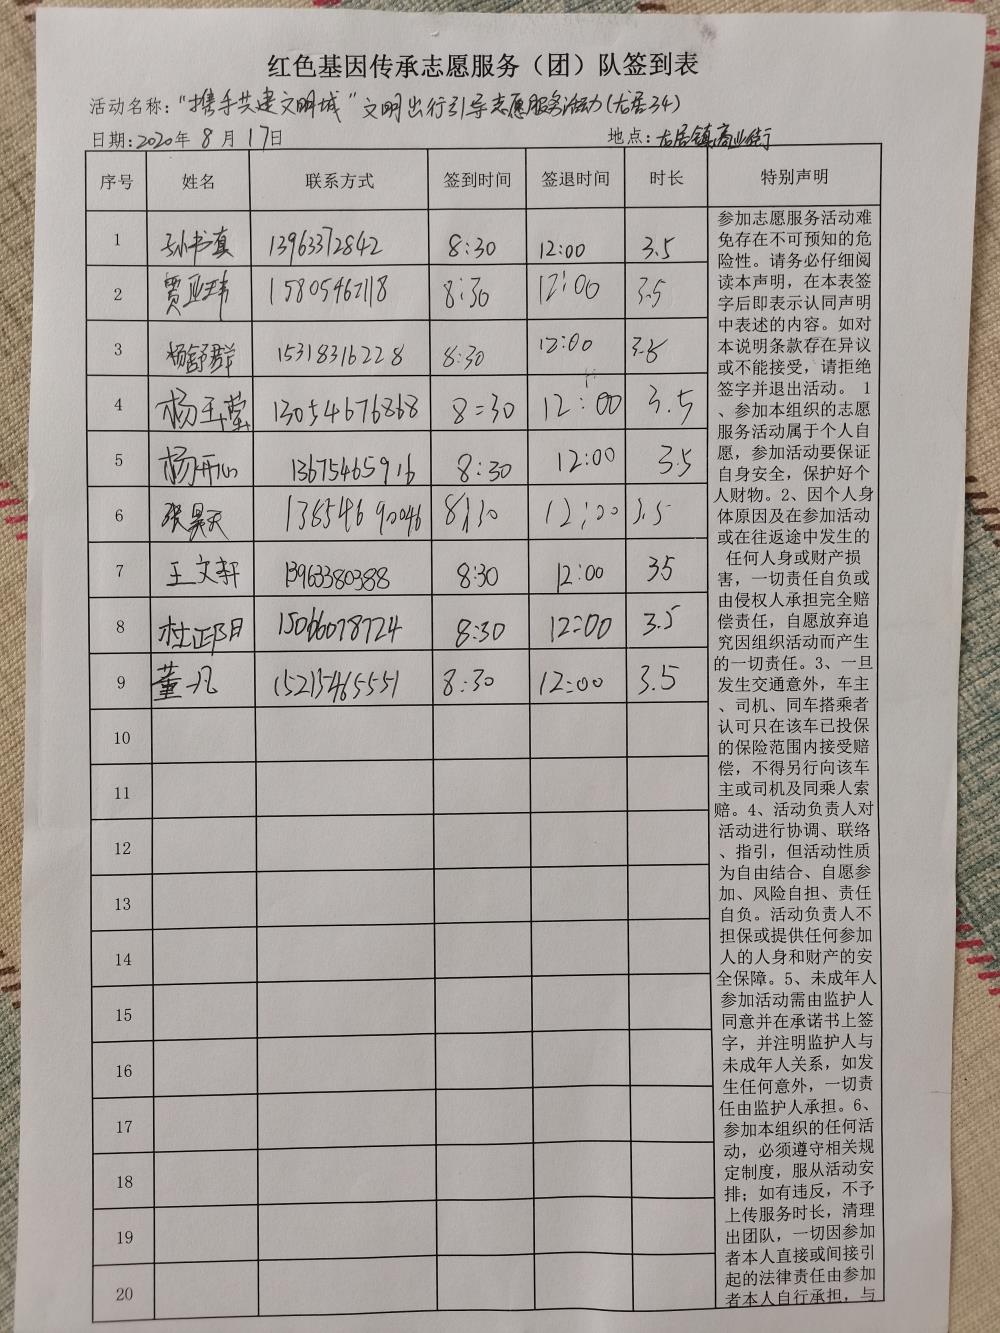 红色基因传承志愿服务（团）队签到表
活动名称："携手共建文明城"文明出行引导志愿服务活动(龙居34)
日期:2020年 8 月 17日 地点:龙居镇商业街
序号 姓名 联系方式 签到时间 签退时间 时长 特别声明
1 孙书真 13963372842 8:30 12:00 3.5
2 贾亚玮 15805462118 8:30 12:00 3.5
3 杨舒群 15318316228 8:30 12:00 3.5
4 杨玉莹 13054676868 8:30 12:00 3.5
5 杨开心 13675465916 8:30 12:00 3.5
6 张昊天 13854690046 8:30 12:00 3.5
7 王文轩 13963380388 8:30 12:00 35
8 杜邵阳 15066078724 8:30 12:00 3.5
9 董一凡 15213465551 8:30 12:00 3.5
10
11
12
13
14
15
16
17
18
19
20
参加志愿服务活动难
免存在不可预知的危
险性。请务必仔细阅
读本声明，在本表签
字后即表示认同声明
中表述的内容。如对
本说明条款存在异议
或不能接受，请拒绝
签字并退出活动。 1
、参加本组织的志愿
服务活动属于个人自
愿，参加活动要保证
自身安全，保护好个
人财物。2、因个人身
体原因及在参加活动
或在往返途中发生的
任何人身或财产损
害，一切责任自负或
由侵权人承担完全赔
偿责任，自愿放弃追
究因组织活动而产生
的一切责任。3、一旦
发生交通意外，车主
、司机、同车搭乘者
认可只在该车已投保
的保险范围内接受赔
偿，不得另行向该车
主或司机及同乘人索
赔。4、活动负责人对
活动进行协调、联络
、指引，但活动性质
为自由结合、自愿参
加、风险自担、责任
自负。活动负责人不
担保或提供任何参加
人的人身和财产的安
全保障。5、未成年人
参加活动需由监护人
同意并在承诺书上签
字，并注明监护人与
未成年人关系，如发
生任何意外，一切责
任由监护人承担。6、
参加本组织的任何活
动，必须遵守相关规
定制度，服从活动安
排；如有违反，不予
上传服务时长，清理
出团队，一切因参加
者本人直接或间接引
起的法律责任由参加
者本人自行承担，与